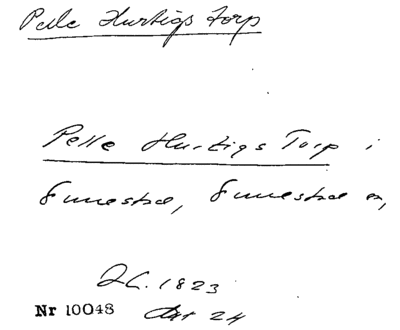 Pelle Hurtigs Torp
Pelle Hurtigs Torp i
Funestad, Funestad sn,
1823
Nr 10048 24